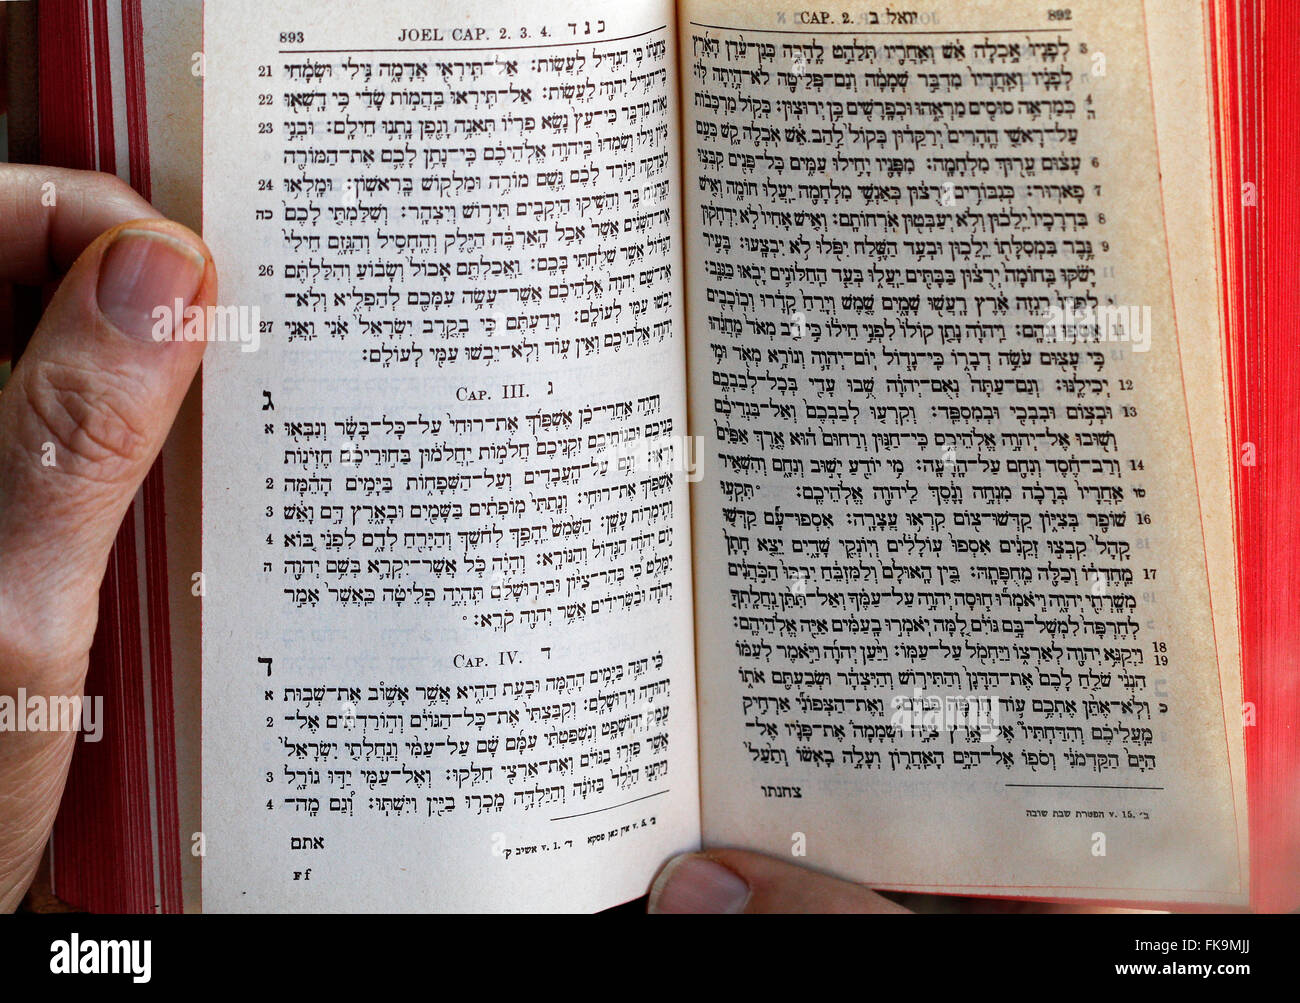 892 יואל ב CAP. 2.
3 לְפָנָיו אָכְלָה אֵשׁ וְאַחֲרָיו תְּלַהֵט לֶהָבָה כְּגַן־עֵדֶן הָאָרֶץ
לְפָנָיו וְאַחֲרָיו מִדְבַּר שְׁמָמָה וְגַם־פְּלֵיטָה לֹא־הָיְתָה לּוֹ׃
4 כְּמַרְאֵה סוּסִים מַרְאֵהוּ וּכְפָרָשִׁים כֵּן יְרוּצוּן׃ כְּקוֹל מַרְכָּבוֹת
ה עַל־רָאשֵׁי הֶהָרִים יְרַקֵּדוּן כְּקוֹל לַהַב אֵשׁ אֹכְלָה קָשׁ כְּעַם
6 עָצוּם עֱרוּךְ מִלְחָמָה׃ מִפָּנָיו יָחִילוּ עַמִּים כָּל־פָּנִים קִבְּצוּ
7 פָארוּר׃ כְּגִבּוֹרִים יְרֻצוּן כְּאַנְשֵׁי מִלְחָמָה יַעֲלוּ חוֹמָה וְאִישׁ
8 בִּדְרָכָיו יֵלֵכוּן וְלֹא יְעַבְּטוּן אֹרְחוֹתָם׃ וְאִישׁ אָחִיו לֹא יִדְחָקוּן
9 גֶּבֶר בִּמְסִלָּתוֹ יֵלֵכוּן וּבְעַד הַשֶּׁלַח יִפֹּלוּ לֹא יִבְצָעוּ׃ בָּעִיר
יָשֹׁקּוּ בַּחוֹמָה יְרֻצוּן בַּבָּתִּים יַעֲלוּ בְּעַד הַחַלּוֹנִים יָבֹאוּ כַּגַּנָּב׃
י לְפָנָיו רָגְזָה אֶרֶץ רָעֲשׁוּ שָׁמָיִם שֶׁמֶשׁ וְיָרֵחַ קָדָרוּ וְכוֹכָבִים
11 אָסְפוּ נָגְהָם׃ וַיהוָה נָתַן קוֹלוֹ לִפְנֵי חֵילוֹ כִּי רַב מְאֹד מַחֲנֵהוּ
כִּי עָצוּם עֹשֵׂה דְבָרוֹ כִּי־גָדוֹל יוֹם־יְהוָה וְנוֹרָא מְאֹד וּמִי
12 יְכִילֶנּוּ׃ וְגַם־עַתָּה נְאֻם־יְהוָה שֻׁבוּ עָדַי בְּכָל־לְבַבְכֶם
13 וּבְצוֹם וּבִבְכִי וּבְמִסְפֵּד׃ וְקִרְעוּ לְבַבְכֶם וְאַל־בִּגְדֵיכֶם
וְשׁוּבוּ אֶל־יְהוָה אֱלֹהֵיכֶם כִּי־חַנּוּן וְרַחוּם הוּא אֶרֶךְ אַפַּיִם
14 וְרַב־חֶסֶד וְנִחָם עַל־הָרָעָה׃ מִי יוֹדֵעַ יָשׁוּב וְנִחָם וְהִשְׁאִיר
טו אַחֲרָיו בְּרָכָה מִנְחָה וָנֶסֶךְ לַיהוָה אֱלֹהֵיכֶם׃ ° תִּקְעוּ
16 שׁוֹפָר בְּצִיּוֹן קַדְּשׁוּ־צוֹם קִרְאוּ עֲצָרָה׃ אִסְפוּ־עָם קַדְּשׁוּ
קָהָל קִבְצוּ זְקֵנִים אִסְפוּ עוֹלָלִים וְיוֹנְקֵי שָׁדָיִם יֵצֵא חָתָן
17 מֵחֶדְרוֹ וְכַלָּה מֵחֻפָּתָהּ׃ בֵּין הָאוּלָם וְלַמִּזְבֵּחַ יִבְכּוּ הַכֹּהֲנִים
מְשָׁרְתֵי יְהוָה וְיֹאמְרוּ חוּסָה יְהוָה עַל־עַמֶּךָ וְאַל־תִּתֵּן נַחֲלָתְךָ
לְחֶרְפָּה לִמְשָׁל־בָּם גּוֹיִם לָמָּה יֹאמְרוּ בָעַמִּים אַיֵּה אֱלֹהֵיהֶם׃
18 19 וַיְקַנֵּא יְהוָה לְאַרְצוֹ וַיַּחְמֹל עַל־עַמּוֹ׃ וַיַּעַן יְהוָה וַיֹּאמֶר לְעַמּוֹ
הִנְנִי שֹׁלֵחַ לָכֶם אֶת־הַדָּגָן וְהַתִּירוֹשׁ וְהַיִּצְהָר וּשְׂבַעְתֶּם אֹתוֹ
כ וְלֹא־אֶתֵּן אֶתְכֶם עוֹד חֶרְפָּה בַּגּוֹיִם׃ וְאֶת־הַצְּפוֹנִי אַרְחִיק
מֵעֲלֵיכֶם וְהִדַּחְתִּיו אֶל־אֶרֶץ צִיָּה וּשְׁמָמָה אֶת־פָּנָיו אֶל־
הַיָּם הַקַּדְמֹנִי וְסֹפוֹ אֶל־הַיָּם הָאַחֲרוֹן וְעָלָה בָאְשׁוֹ וְתַעַל
צחנתו
ב׳ v. 15. הפטרת שבת שובה
כנד JOEL CAP. 2. 3. 4. 893
21 צַחֲנָתוֹ כִּי הִגְדִּיל לַעֲשׂוֹת׃ אַל־תִּירְאִי אֲדָמָה גִּילִי וּשְׂמָחִי
22 כִּי־הִגְדִּיל יְהוָה לַעֲשׂוֹת׃ אַל־תִּירְאוּ בַּהֲמוֹת שָׂדַי כִּי דָשְׁאוּ
23 נְאוֹת מִדְבָּר כִּי־עֵץ נָשָׂא פִרְיוֹ תְּאֵנָה וָגֶפֶן נָתְנוּ חֵילָם׃ וּבְנֵי
צִיּוֹן גִּילוּ וְשִׂמְחוּ בַּיהוָה אֱלֹהֵיכֶם כִּי־נָתַן לָכֶם אֶת־הַמּוֹרֶה
24 לִצְדָקָה וַיּוֹרֶד לָכֶם גֶּשֶׁם מוֹרֶה וּמַלְקוֹשׁ בָּרִאשׁוֹן׃ וּמָלְאוּ
כה הַגֳּרָנוֹת בָּר וְהֵשִׁיקוּ הַיְקָבִים תִּירוֹשׁ וְיִצְהָר׃ וְשִׁלַּמְתִּי לָכֶם
אֶת־הַשָּׁנִים אֲשֶׁר אָכַל הָאַרְבֶּה הַיֶּלֶק וְהֶחָסִיל וְהַגָּזָם חֵילִי
26 הַגָּדוֹל אֲשֶׁר שִׁלַּחְתִּי בָּכֶם׃ וַאֲכַלְתֶּם אָכוֹל וְשָׂבוֹעַ וְהִלַּלְתֶּם
אֶת־שֵׁם יְהוָה אֱלֹהֵיכֶם אֲשֶׁר־עָשָׂה עִמָּכֶם לְהַפְלִיא וְלֹא־
27 יֵבֹשׁוּ עַמִּי לְעוֹלָם׃ וִידַעְתֶּם כִּי בְקֶרֶב יִשְׂרָאֵל אָנִי וַאֲנִי
יְהוָה אֱלֹהֵיכֶם וְאֵין עוֹד וְלֹא־יֵבֹשׁוּ עַמִּי לְעוֹלָם׃
CAP. III. ג
ג
א וְהָיָה אַחֲרֵי־כֵן אֶשְׁפּוֹךְ אֶת־רוּחִי עַל־כָּל־בָּשָׂר וְנִבְּאוּ
בְּנֵיכֶם וּבְנוֹתֵיכֶם זִקְנֵיכֶם חֲלֹמוֹת יַחֲלֹמוּן בַּחוּרֵיכֶם חֶזְיֹנוֹת
2 יִרְאוּ׃ וְגַם עַל־הָעֲבָדִים וְעַל־הַשְּׁפָחוֹת בַּיָּמִים הָהֵמָּה
3 אֶשְׁפּוֹךְ אֶת־רוּחִי׃ וְנָתַתִּי מוֹפְתִים בַּשָּׁמַיִם וּבָאָרֶץ דָּם וָאֵשׁ
4 וְתִימֲרוֹת עָשָׁן׃ הַשֶּׁמֶשׁ יֵהָפֵךְ לְחֹשֶׁךְ וְהַיָּרֵחַ לְדָם לִפְנֵי בּוֹא
ה יוֹם יְהוָה הַגָּדוֹל וְהַנּוֹרָא׃ וְהָיָה כֹּל אֲשֶׁר־יִקְרָא בְּשֵׁם יְהוָה
יִמָּלֵט כִּי בְּהַר־צִיּוֹן וּבִירוּשָׁלִַם תִּהְיֶה פְלֵיטָה כַּאֲשֶׁר אָמַר
יְהוָה וּבַשְּׂרִידִים אֲשֶׁר יְהוָה קֹרֵא׃ °
CAP. IV. ד
ד
א כִּי הִנֵּה בַּיָּמִים הָהֵמָּה וּבָעֵת הַהִיא אֲשֶׁר אָשִׁוב אֶת־שְׁבוּת
2 יְהוּדָה וִירוּשָׁלִָם׃ וְקִבַּצְתִּי אֶת־כָּל־הַגּוֹיִם וְהוֹרַדְתִּים אֶל־
עֵמֶק יְהוֹשָׁפָט וְנִשְׁפַּטְתִּי עִמָּם שָׁם עַל־עַמִּי וְנַחֲלָתִי יִשְׂרָאֵל
3 אֲשֶׁר פִּזְּרוּ בַגּוֹיִם וְאֶת־אַרְצִי חִלֵּקוּ׃ וְאֶל־עַמִּי יַדּוּ גוֹרָל
4 וַיִּתְּנוּ הַיֶּלֶד בַּזּוֹנָה וְהַיַּלְדָּה מָכְרוּ בַיַּיִן וַיִּשְׁתּוּ׃ וְגַם מָה־
אתם
v. 5. אין כאן פסקא ד׳ v. 1. אשיב ק׳
Ff
alamy
alamy
Image ID: FK9MJJ
www.alamy.com